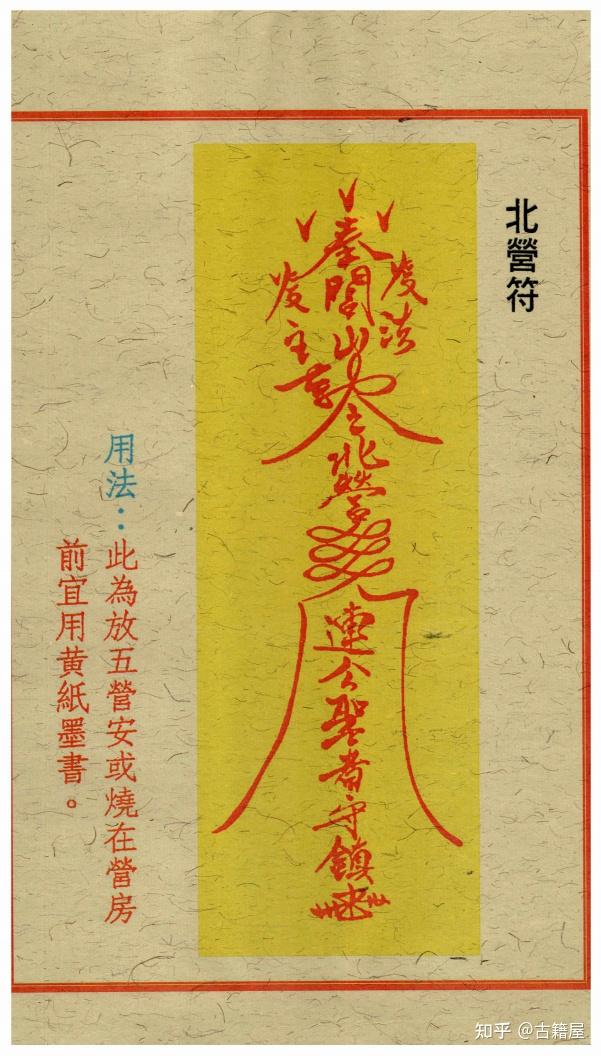 北營符
奉閭山
法
主
之北營
連公聖者守鎮
用法：此為放五營安或燒在營房
前宜用黃紙墨書。
知乎 @古籍屋